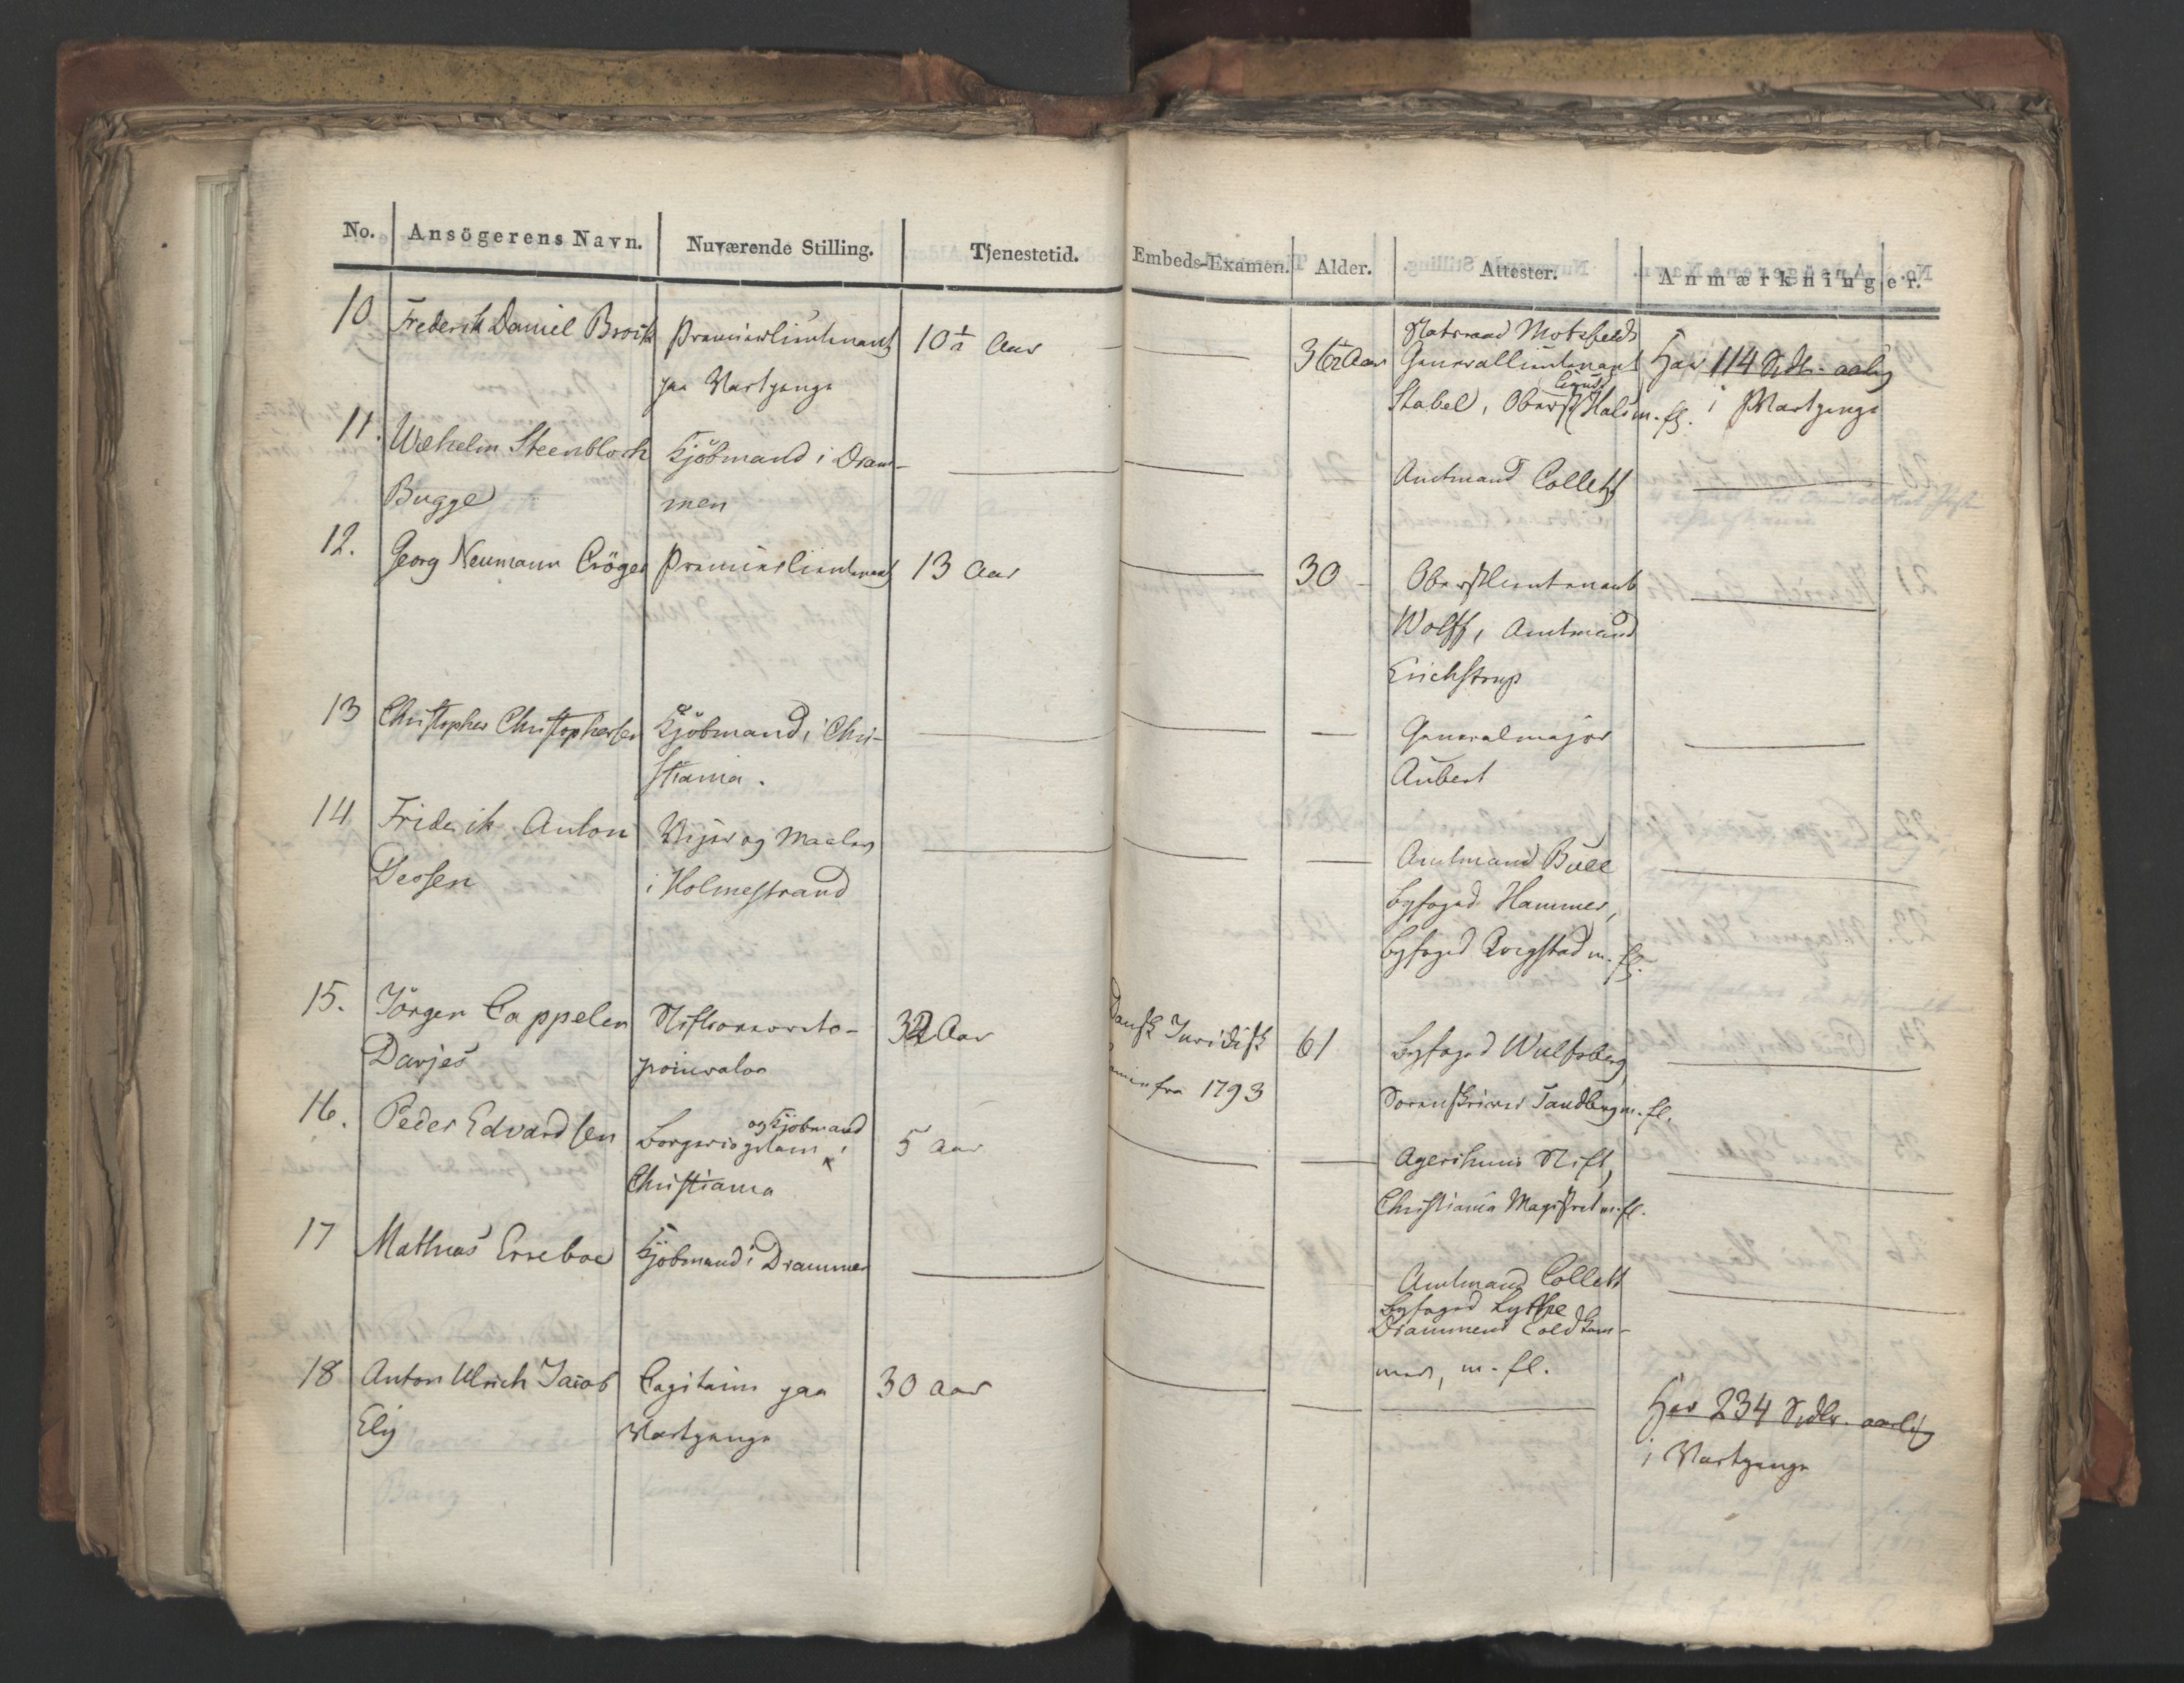 No. Ansögerens Navn. Nuværende Stilling. Tjenestetid. Embeds-Examen. Alder. Attester. Anmærkninger.
10 Frederik Daniel Brock Premierlieutenant 10½ Aar 36½ Aar Statsraad Motzfeldt
paa Vartpenge Generallieutenant Har 114 Spdlr. aarlig
Stabel, Oberst Hals m. fl. i Vartpenge
11. Wilhelm Steenbloch Kjöbmand i Dram- Amtmand Collett
Bugge men
12. Georg Neumann Cröger Premierlieutenant 13 Aar 30 Oberstlieutenant
Wolff, Amtmand
Erichstrup
13 Christopher Christophersen Kjöbmand i Chri- Generalmajor
stiania. Aubert
14 Friderik Anton Veier og Maaler Amtmand Bull
Dessen i Holmestrand Byfoged Hammer,
Byfoged m. fl.
15. Jörgen Cappelen 32 Aar Dansk Juridisk 61 Byfoged Wulfsberg
Darjes fra 1793 Sorenskriver Sandberg m. fl.
16. Peder Edvardsen og Kjöbmand i 5 Aar Agershuus Stift,
Christiania Christiania Magistrat m. fl.
17 Mathias Kjöbmand i Drammen Amtmand Collett
Byfoged
Drammens Toldkam-
mer, m. fl.
18 Anton Ulrich Jacob Capitain paa 30 Aar Har 234 Spdlr. aarlig
Ely Vartpenge i Vartpenge